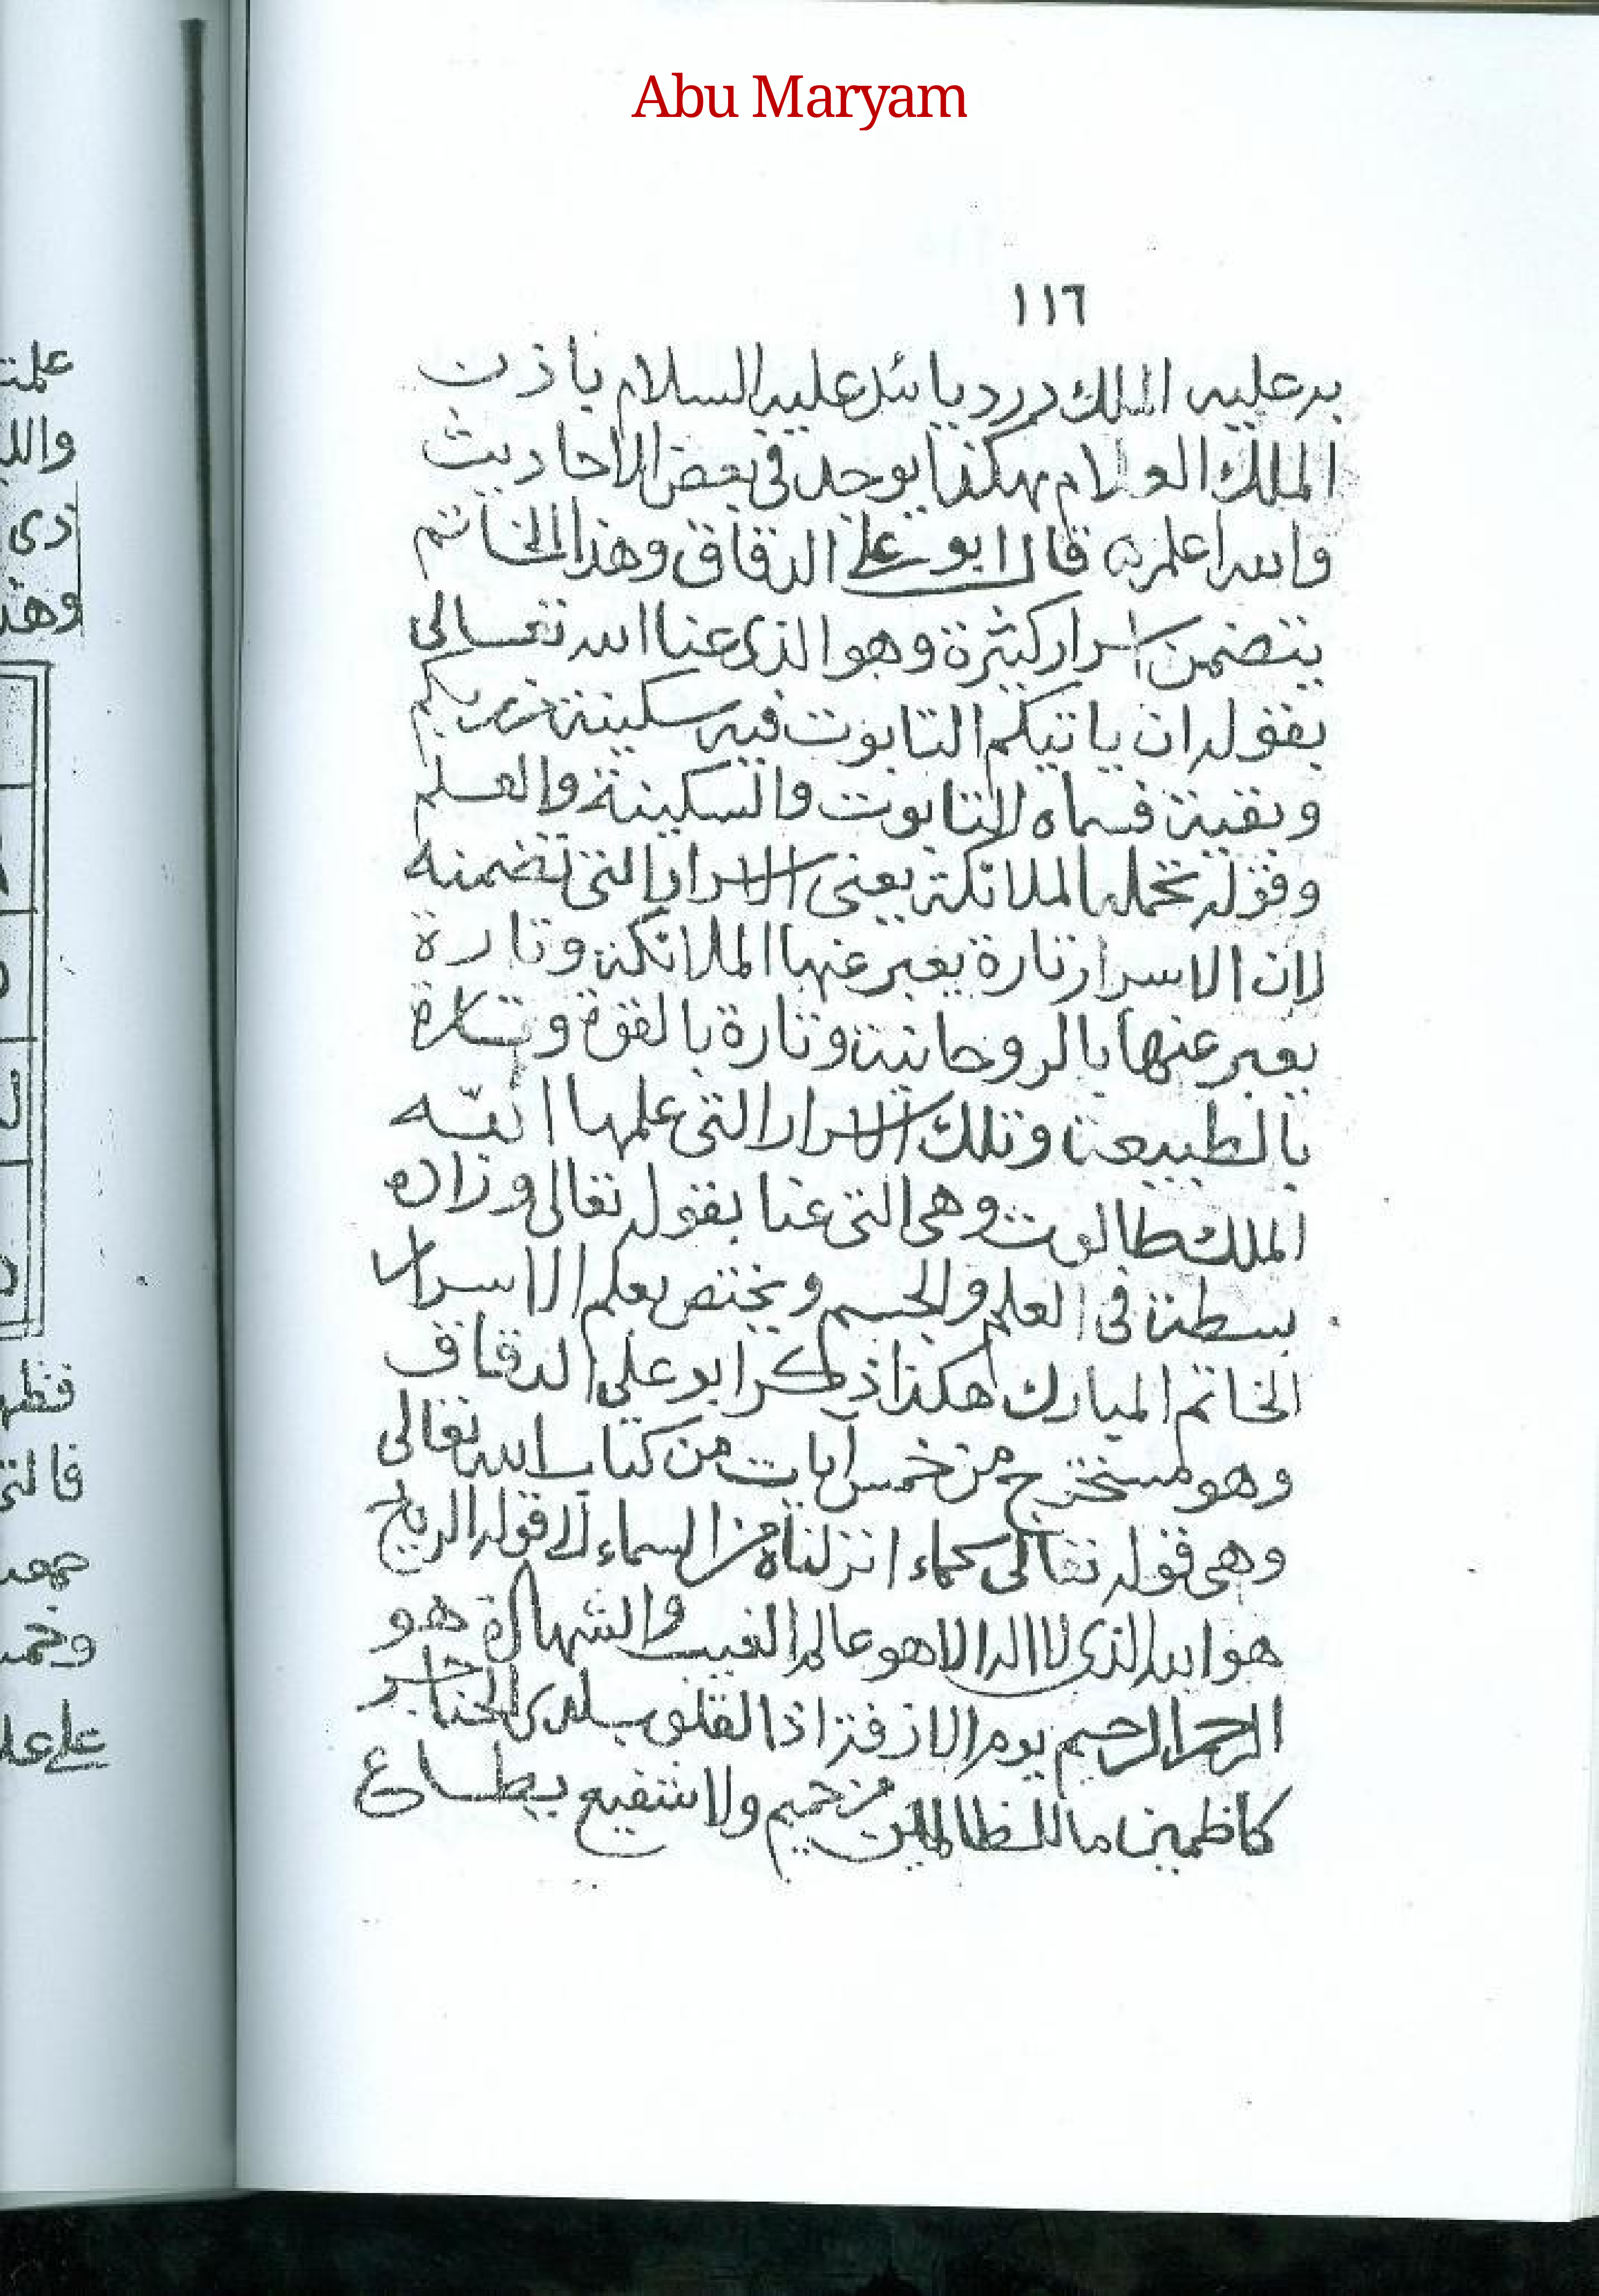 Abu Maryam
١١٦
به عليه الملك دردیائل عليه السلام باذن
الملك العلام هكذا يوجد في بعض الاحاديث
والله اعلم قال ابو علي الدقاق وهذا الخاتم
يتضمن اسرار كثيرة وهو الذى عنا الله تعالى
بقوله ان ياتيكم التابوت فيه سكينة من ربكم
وبقية فسماه التابوت والسكينة والعلم
وقوله تحمله الملائكة يعنى الاسرار التى تضمنه
لان الاسرار تارة يعبر عنها الملائكة وتارة
يعبر عنها بالروحانية وتارة بالقوة وتارة
بالطبيعة وتلك الاسرار التى علمها
الملك طالوت وهى التى عنا بقوله تعالى وزاده
بسطة فى العلم والجسم ويختص بعلم الاسرار
الخاتم المبارك هكذا ذكر ابو على الدقاق
وهو مستخرج من خمس آيات من كتاب الله تعالى
وهى قوله تعالى كماء انزلناه من السماء الى قوله الرياح
هو الله الذى لا اله الا هو عالم الغيب والشهادة هو
الرحمن الرحيم يوم الازفة اذ القلوب لدى الحناجر
كاظمين ما للظالمين من حميم ولا شفيع يطاع
علمت
ذى
وهذ
على